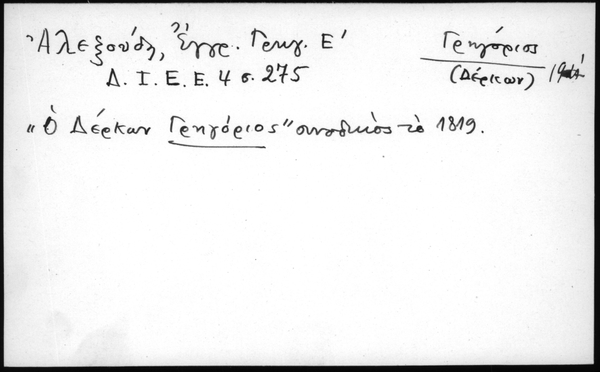 Ἀλεξούδη, Ἔγγρ. Γρηγ. Ε'
Δ. Ι. Ε. Ε. 4 σ. 275
Γρηγόριος
(Δέρκων)
„Ὁ Δέρκων Γρηγόριος" συνοδικὸς τὸ 1819.